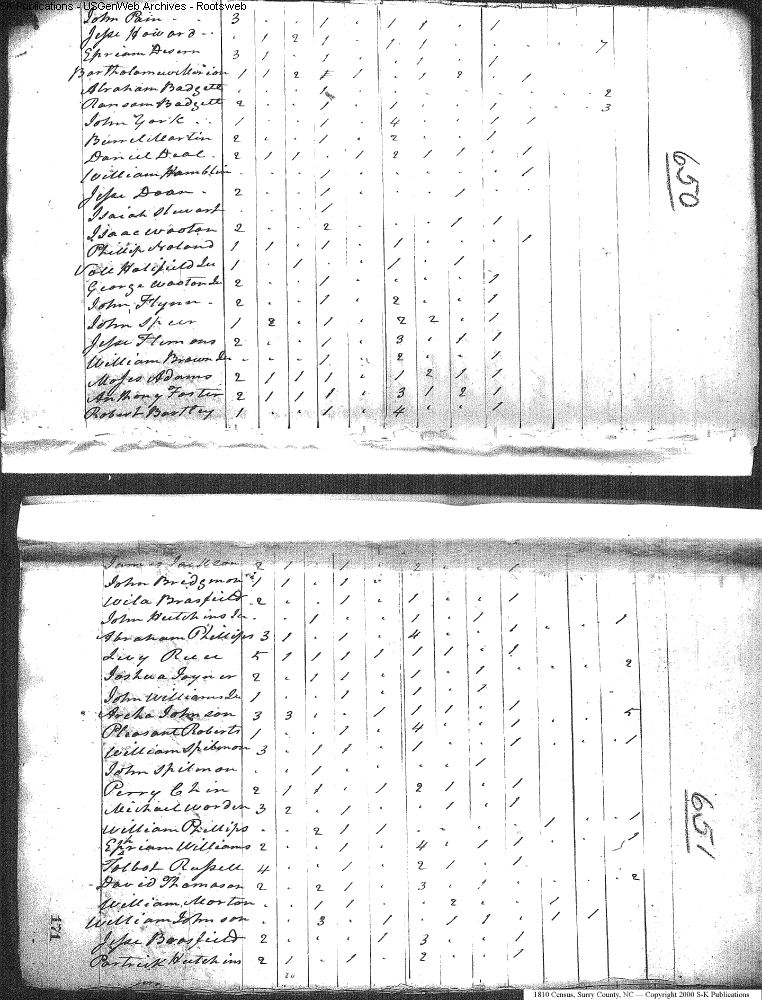 S-K Publications - USGenWeb Archives - Rootsweb
John Pain - - 3 . . 1 . 1 1 . 1
Jesse Howard - . 1 2 1 . 1 1 . . . . 7
Epriam Desern 3 1 . 1 . . . . 1
Bartholamew Marion 1 1 2 1 1 . 1 2 . 1
Abraham Badgett . . . 1 . . . . . . . 2
Ransom Badgett 2 . . 1 . 1 . . 1 . . 3
John York . . 1 . . 1 . 4 . . 1 1
Burrel Martin 2 . . 1 . 2 . . 1
Daniel Deal . 2 1 1 . 1 2 1 1 . 1
William Hamblin . . . 1 . . . . . 1
Jesse Doan . 2 . . 1 . . . 1
Isaiah Stewart . . . 1
Isaac Wooton 2 . . 2 . . . 1 1
Phillip Noland 1 1 . 1 . 1 . . . 1
Vall Holifield Ju 1 . 1 . . 1 . 1
George Wooton Ju 2 . . 1 . . . . 1
John Flynn . 2 . . 1 . 2 . . 1
John Speer 1 2 . 1 1 2 2 . 1
Jesse Flemons 2 . . 1 . 3 . 1 1
William Brown Ju . . . 1 . 2 . . 1
Moses Adams 2 1 1 1 . 1 2 1 1
Anthony Foster 2 1 1 1 . 3 1 2 1
Robert Bartley 1 . . 1 . 4 . . 1
650
James Jackson 2 1 . 1 . 2 . . 1
John Bridgmon 1 1 . 1
Wila Brasfield 2 . . 1 . 1 . . 1
John Hutchins Ju . . 1 . . 1 . 1 . . . 1
Abraham Phillips 3 1 . 1 . 4 . . 1
Levy Reece 5 1 1 1 1 1 1 . 1
Joshua Joyner 2 . 1 1 . 1 . 1 . . . 2
John Williams Ju 1 . . 1 . 1 . 1
Archa Johnson 3 3 . . 1 1 1 . 1 . . 5
Pleasant Roberts 1 . . 1 . 4 . . 1 . . 1
William Spilmon 3 . 1 1 . 1 . . 1
John Spilmon . . 1 . . . . 1
Perry Chin 2 1 1 . 1 2 1 . 1
Michael Worden 3 2 . 1 . . 1 . 1 . . 1
William Phillips . . 2 1 1 . . . . 1
Epriam Williams 2 . . 1 . 4 . 1 1 . . 1
Tolbot Russell 4 . . 1 . 2 1 . 1
David Thomason 2 . 2 1 . 3 . 1 . . . 2
William Morton . . 1 1 . . 2 . . 1
William Johnson . . 3 . 1 . 1 1 . 1 1
Jesse Brasfield 2 . . . 1 3 . . 1
Partrick Hutchins 2 1 . 1 . 2 . . 1
651
171
1810 Census, Surry County, NC — Copyright 2000 S-K Publications